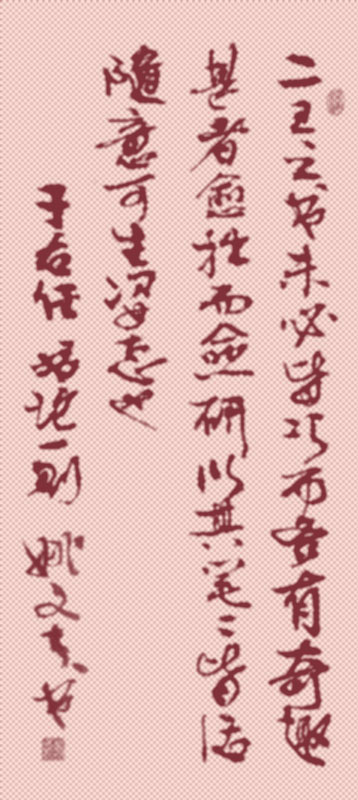 二王之书未必皆巧而各有奇趣
甚者愈拙而愈研以其笔〻皆活
隨意可生姿态也
于右任 一则 姚文书